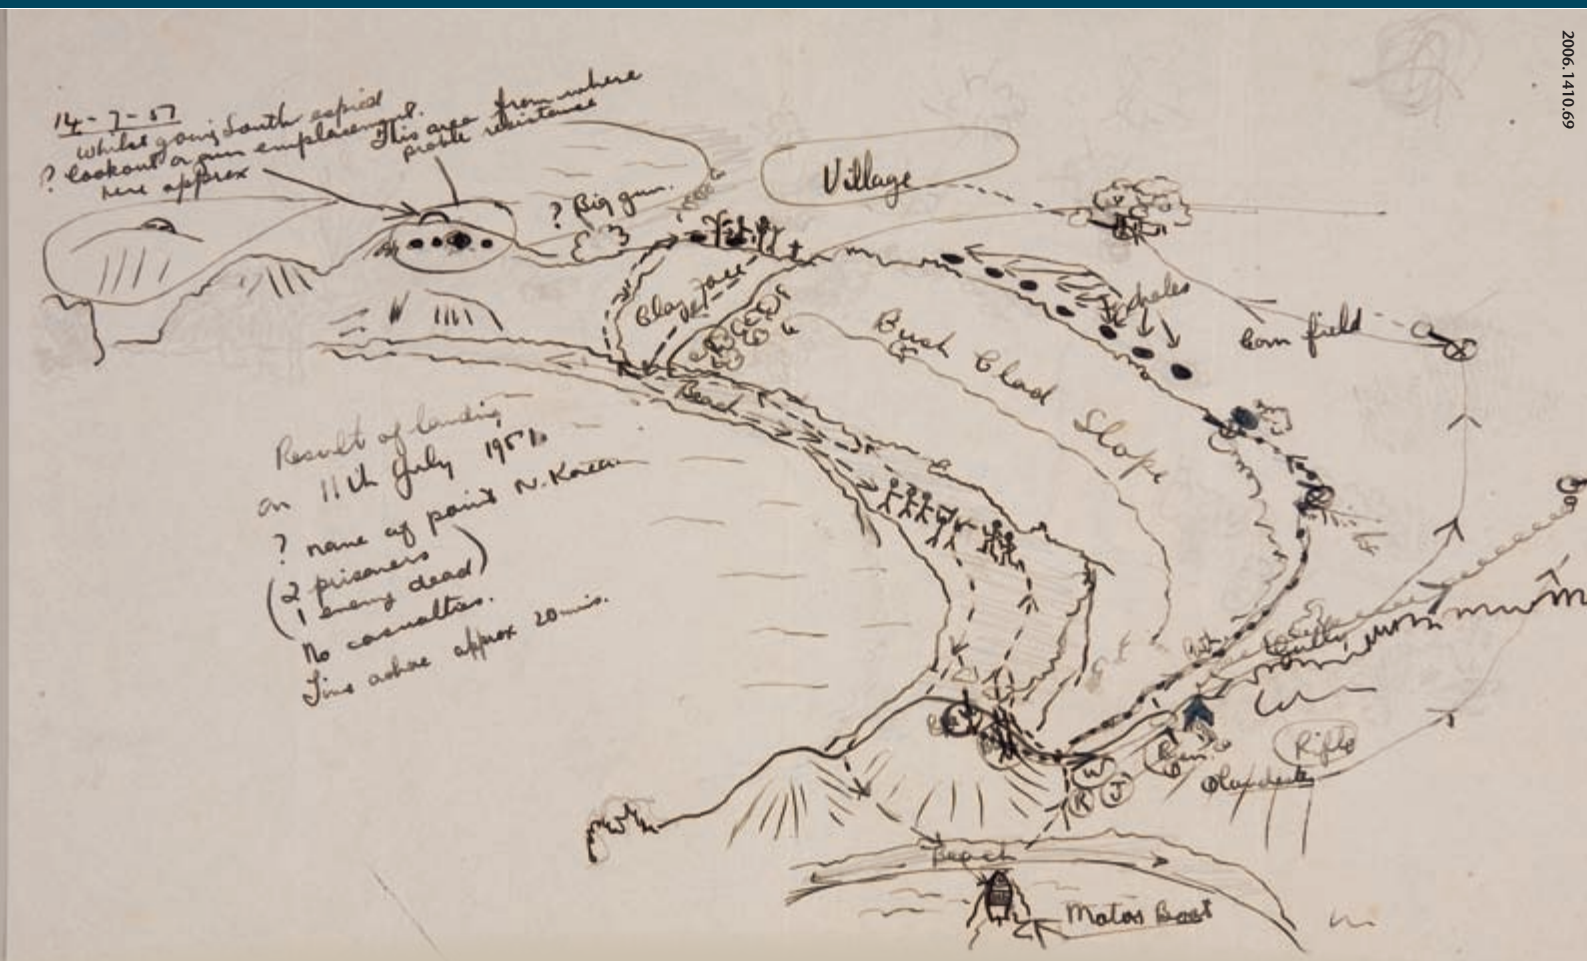 14-7-51
Whilst going South espied
? lookout or gun emplacement.
here approx
This area from where
prob resistance
? Big gun.
Village
Clay face
Foxholes
Corn field
Bush Clad Slope
Beach
Result of landing
on 11th July 1951.
? name of point N. Korea
(2 prisoners
1 enemy dead)
No casualties.
Time ashore approx 20 mis.
Gully
W
R J
Bren.
Rifle
Beach
Motor Boat
2006.1410.69